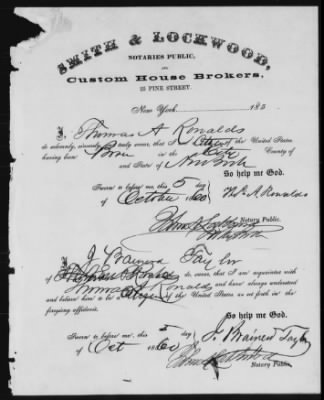 SMITH & LOCKWOOD,
NOTARIES PUBLIC,
AND
Custom House Brokers,
25 PINE STREET.
New York 185
I, Thomas A Ronalds
do solemnly, sincerely, truly swear, that I Citizen of the United States
having been Born in the City County of
and State of New York
So help me God.
Sworn to before me, this 5 day
of October 1860
Thos A Ronalds
Notary Public.
I, J Brainerd Taylor
of do swear, that I am acquainted with
Thomas A Ronalds and have always understood
and believe him to be a Citizen of the United States as set forth in the
foregoing affidavit.
So help me God.
Sworn to before me, this 5 day
of Oct 1860
J. Brainerd Taylor
Notary Public.